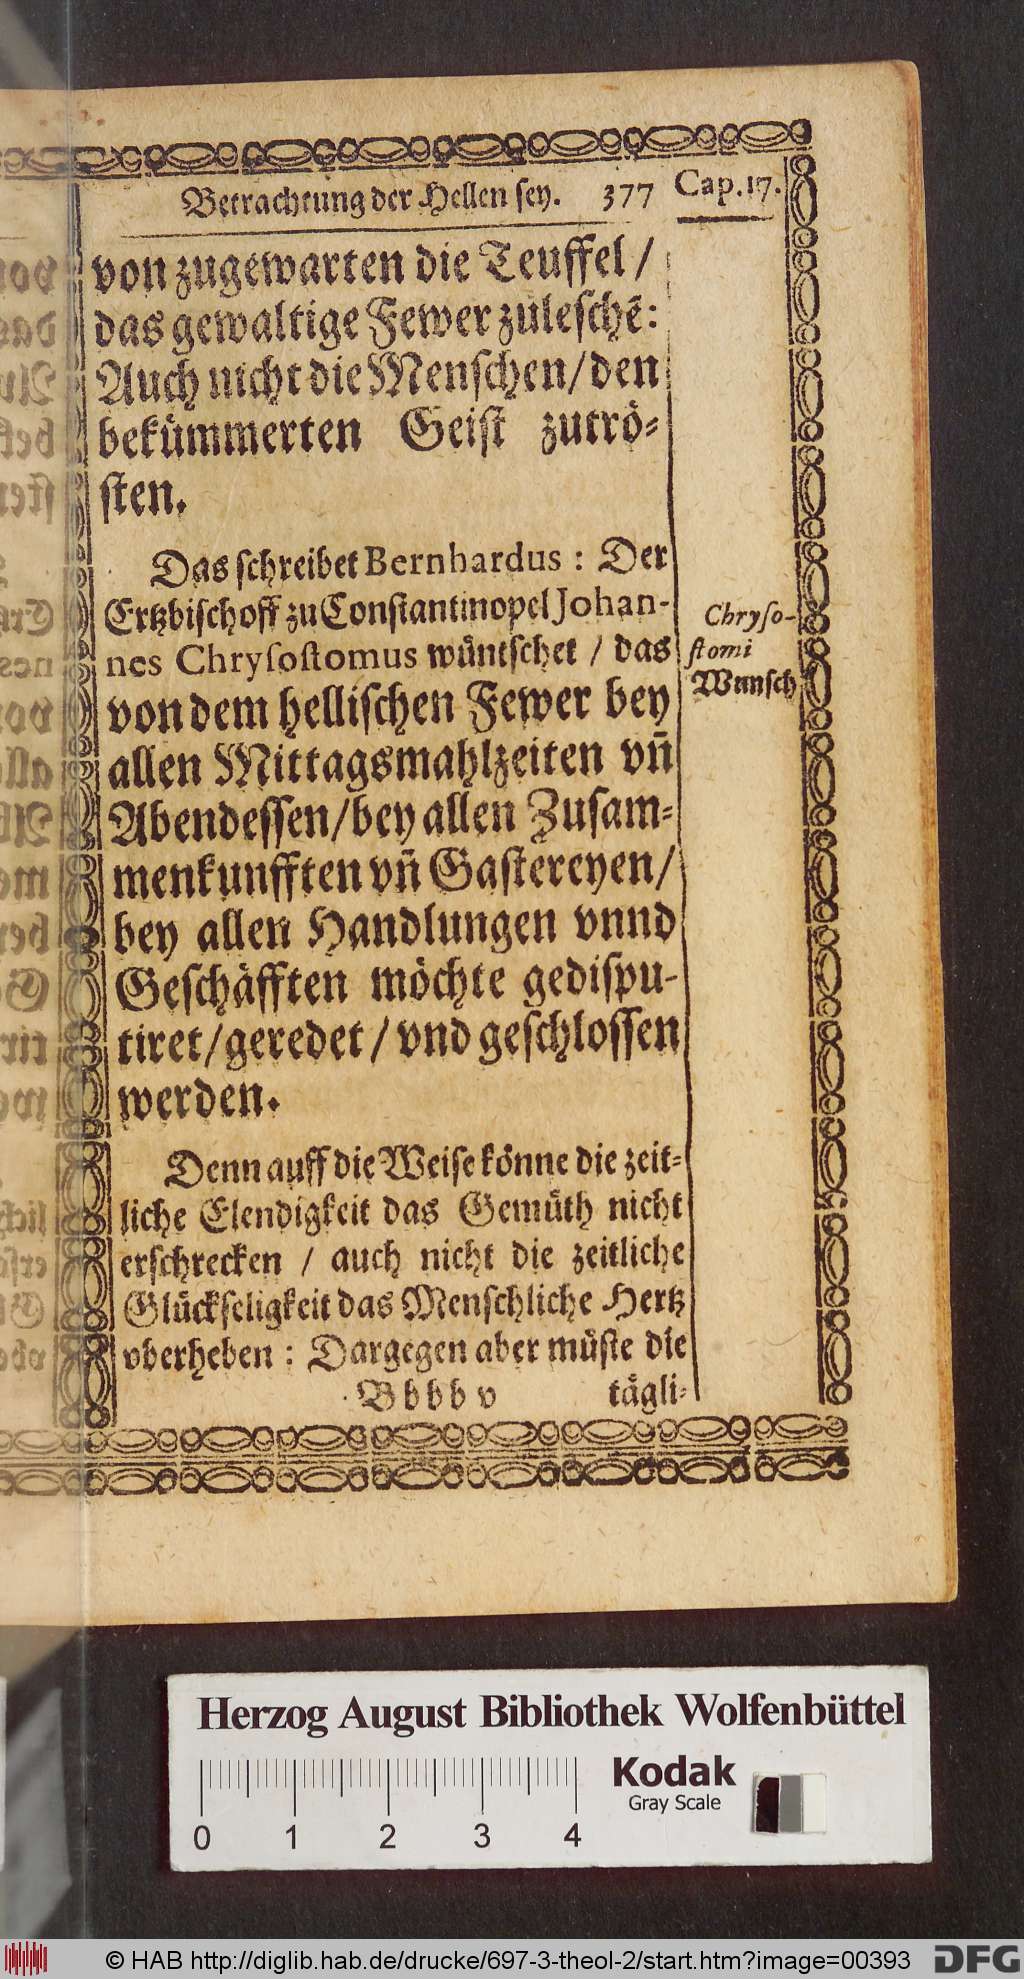 Betrachtung der Hellen sey. 377 Cap. 17.
von zugewarten die Teuffel /
das gewaltige Fewer zuleschẽ:
Auch nicht die Menschen/den
bekümmerten Geist zutrö-
sten.
Das schreibet Bernhardus : Der
Ertzbischoff zu Constantinopel Johan-
nes Chrysostomus wüntschet / das
Chryso-
stomi
Wunsch
von dem hellischen Fewer bey
allen Mittagsmahlzeiten vñ
Abendessen/bey allen Zusam-
menkunfften vñ Gastereyen/
bey allen Handlungen vnnd
Geschäfften möchte gedispu-
tiret/geredet/vnd geschlossen
werden.
Denn auff die Weise könne die zeit-
liche Elendigkeit das Gemüth nicht
erschrecken / auch nicht die zeitliche
Glückseligkeit das Menschliche Hertz
vberheben : Dargegen aber müste die
Bbbb v tägli-
Herzog August Bibliothek Wolfenbüttel
Kodak
Gray Scale
0 1 2 3 4
© HAB http://diglib.hab.de/drucke/697-3-theol-2/start.htm?image=00393 DFG